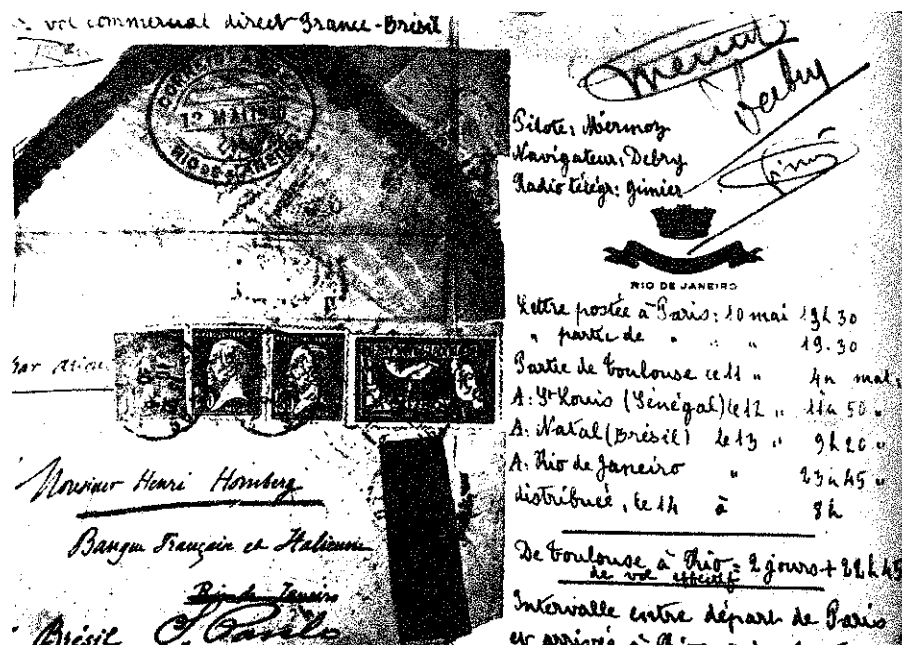 vol commercial direct France-Brésil
CORREIO AEREO
13 MAI 1930
RIO DE JANEIRO
Par avion
Monsieur Henri Homberg
Banque Française et Italienne
Rio de Janeiro
Brésil S. Paulo
Mermoz
Debry
Gimié
Pilote: Mermoz
Navigateur: Debry
Radio télégr: Gimier
RIO DE JANEIRO
Lettre postée à Paris: 10 mai 19h30
" partie de " " " 19.30
Partie de Toulouse le 11 " 4h mat.
A: St Louis (Sénégal) le 12 " 11h50 "
A: Natal (Brésil) le 13 " 9h20 "
A: Rio de Janeiro " 23h45 "
distribuée, le 14 à 8h
De Toulouse à Rio = 2 jours + 22h45
de vol effectif
Intervalle entre départ de Paris
et arrivée à Rio